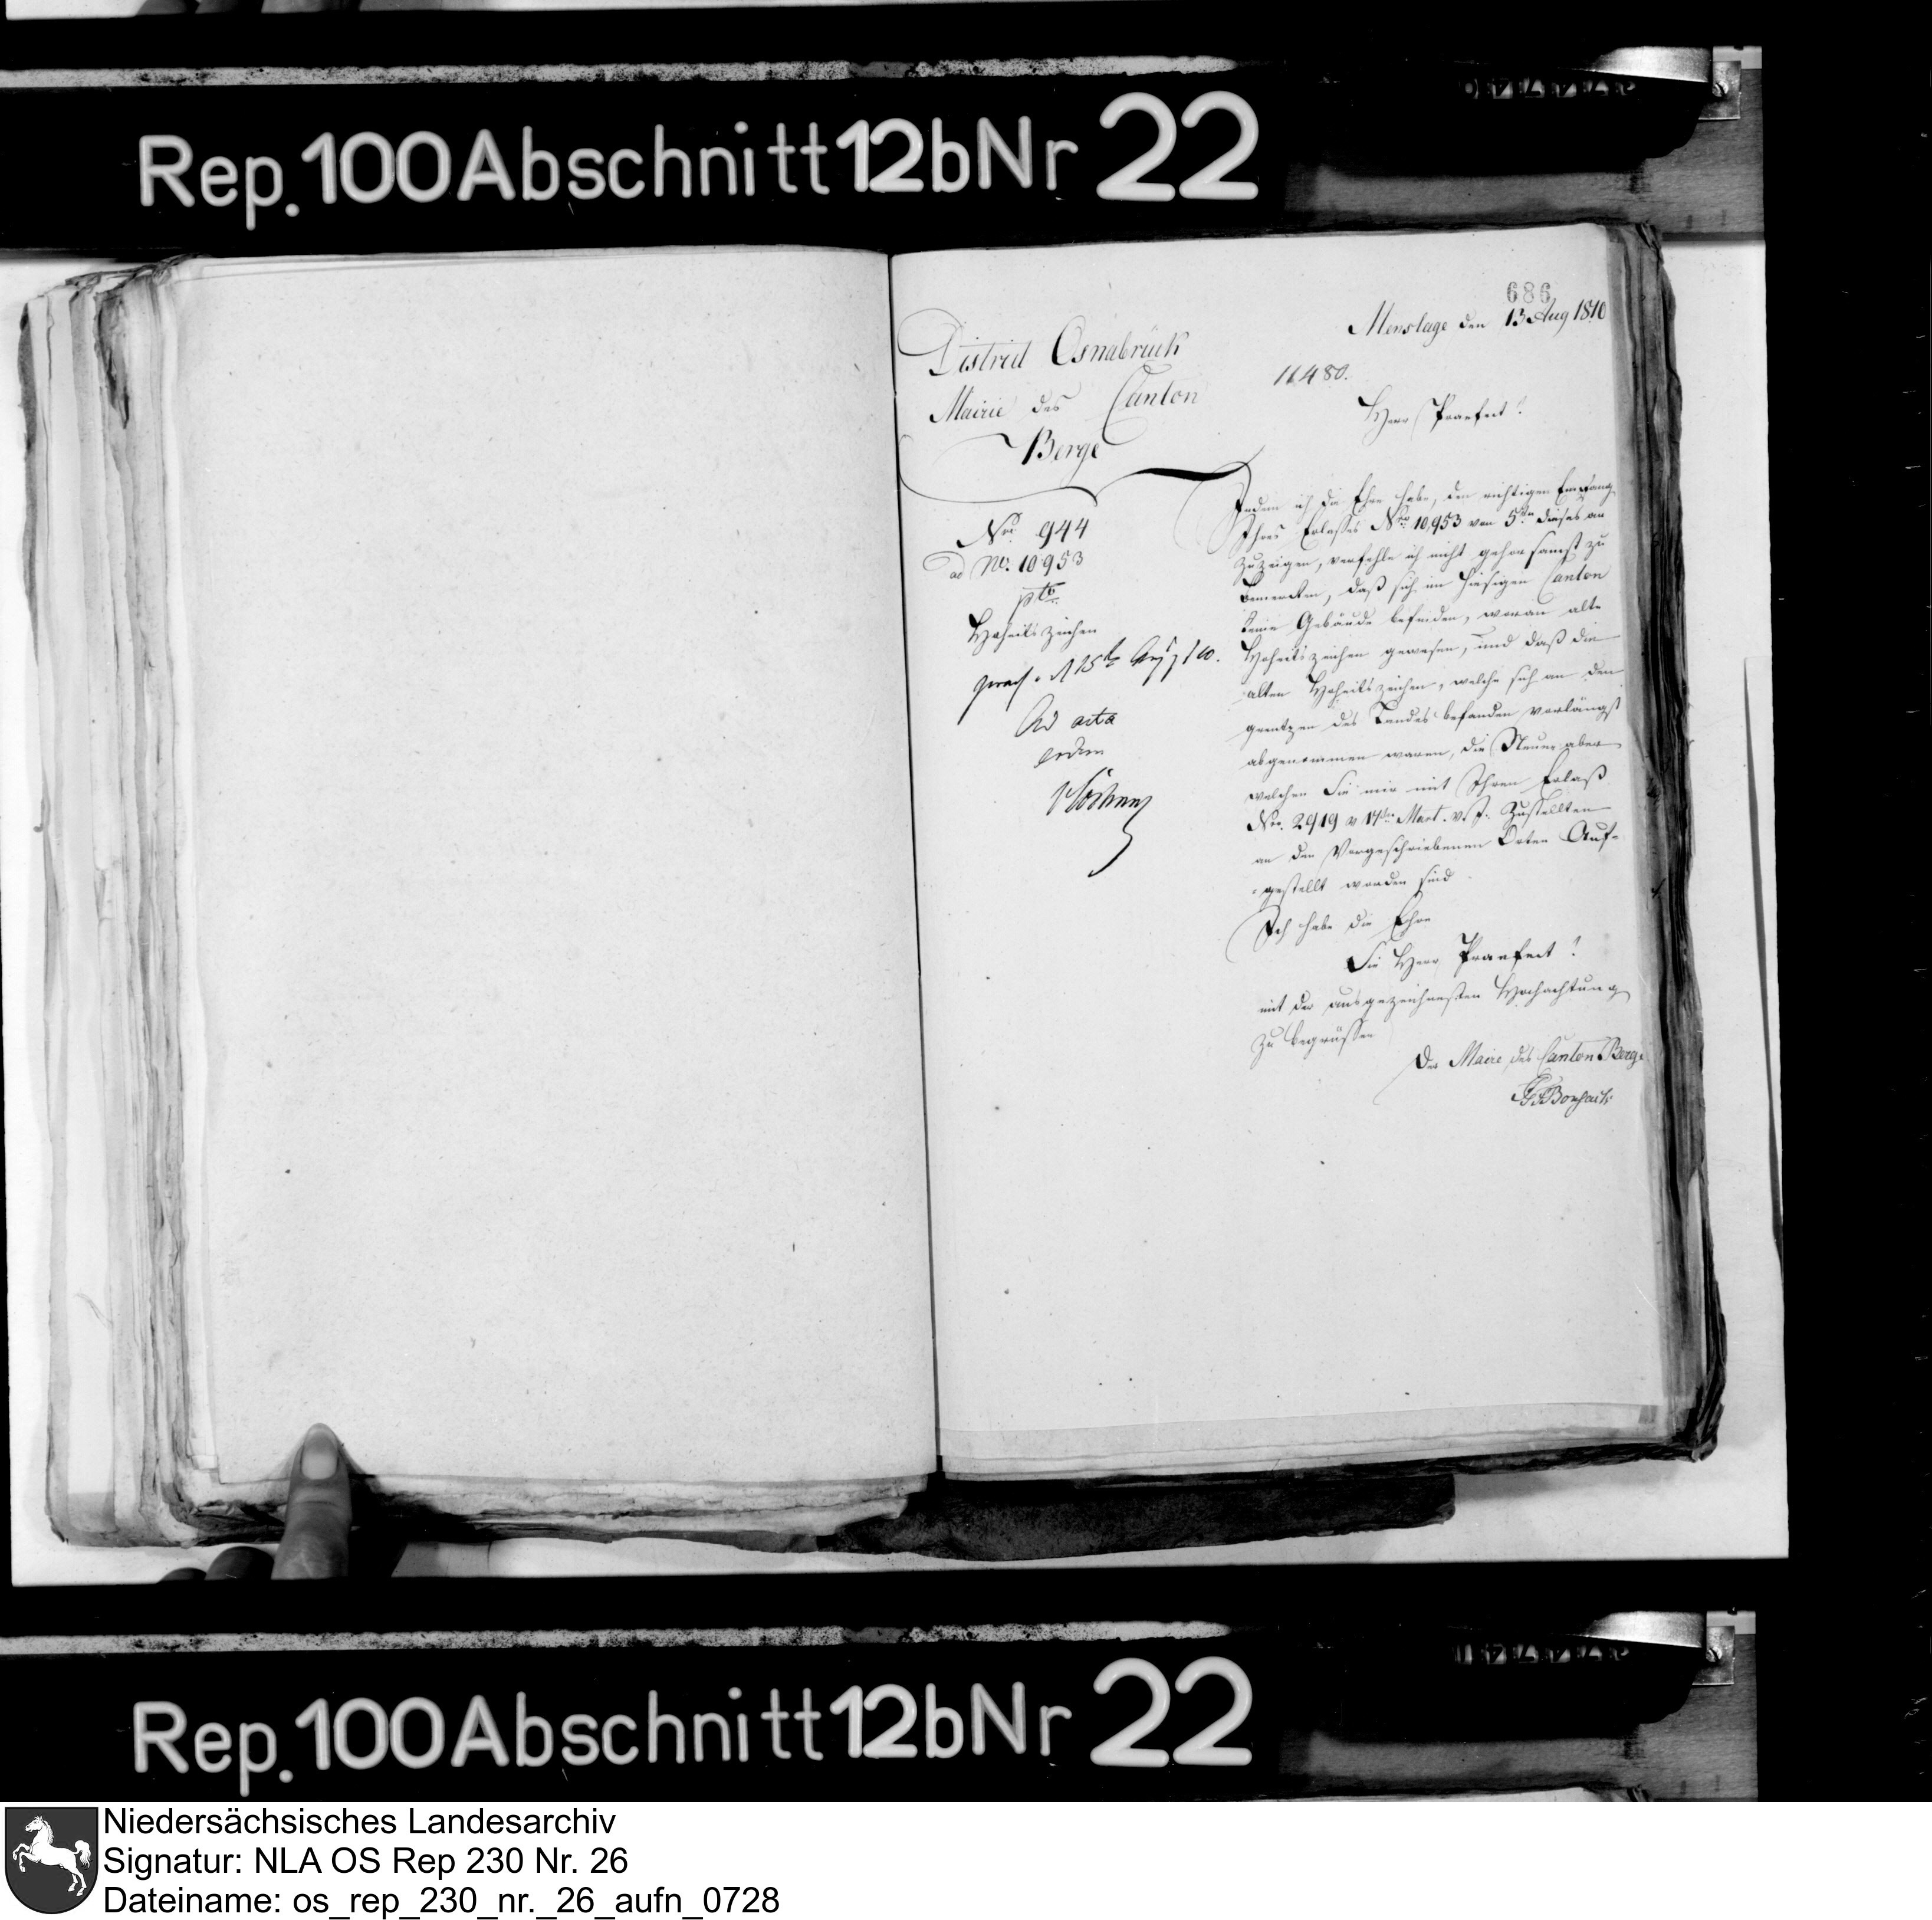 Rep. 100 Abschnitt 12b Nr 22
686
Menslage den 13 Aug 1810
District Osnabrück
Mairie des Canton
Berge
11480.
Herr Praefect!
Nro. 944
ad Nro. 10953
pto
Hoheitszeichen
Ad acta
Indem ich die Ehre habe, den richtigen Empfang
Ihres Erlasses Nro. 10,953 von 5ten dieses an
zuzeigen, verfehle ich nicht gehorsamst zu
bemercken, daß sich im hiesigen Canton
keine Gebäude befinden, woran alte
Hoheitszeichen gewesen, und daß die
alten Hoheitszeichen, welche sich an den
grentzen des Landes befanden vorlängst
abgenommen waren, die Neuen aber
welchen Sie mir mit Ihren Erlaß
Nro. 2919 v 17ten Mart. v. J. zustellten
an den Vorgeschriebenen Orten Auf-
-gestellt worden sind
Ich habe die Ehre
Sie Herr Praefect!
mit der ausgezeichnesten Hochachtung
zu begrüssen
Der Maire des Canton Berge
Rep. 100 Abschnitt 12b Nr 22
Niedersächsisches Landesarchiv
Signatur: NLA OS Rep 230 Nr. 26
Dateiname: os_rep_230_nr._26_aufn_0728